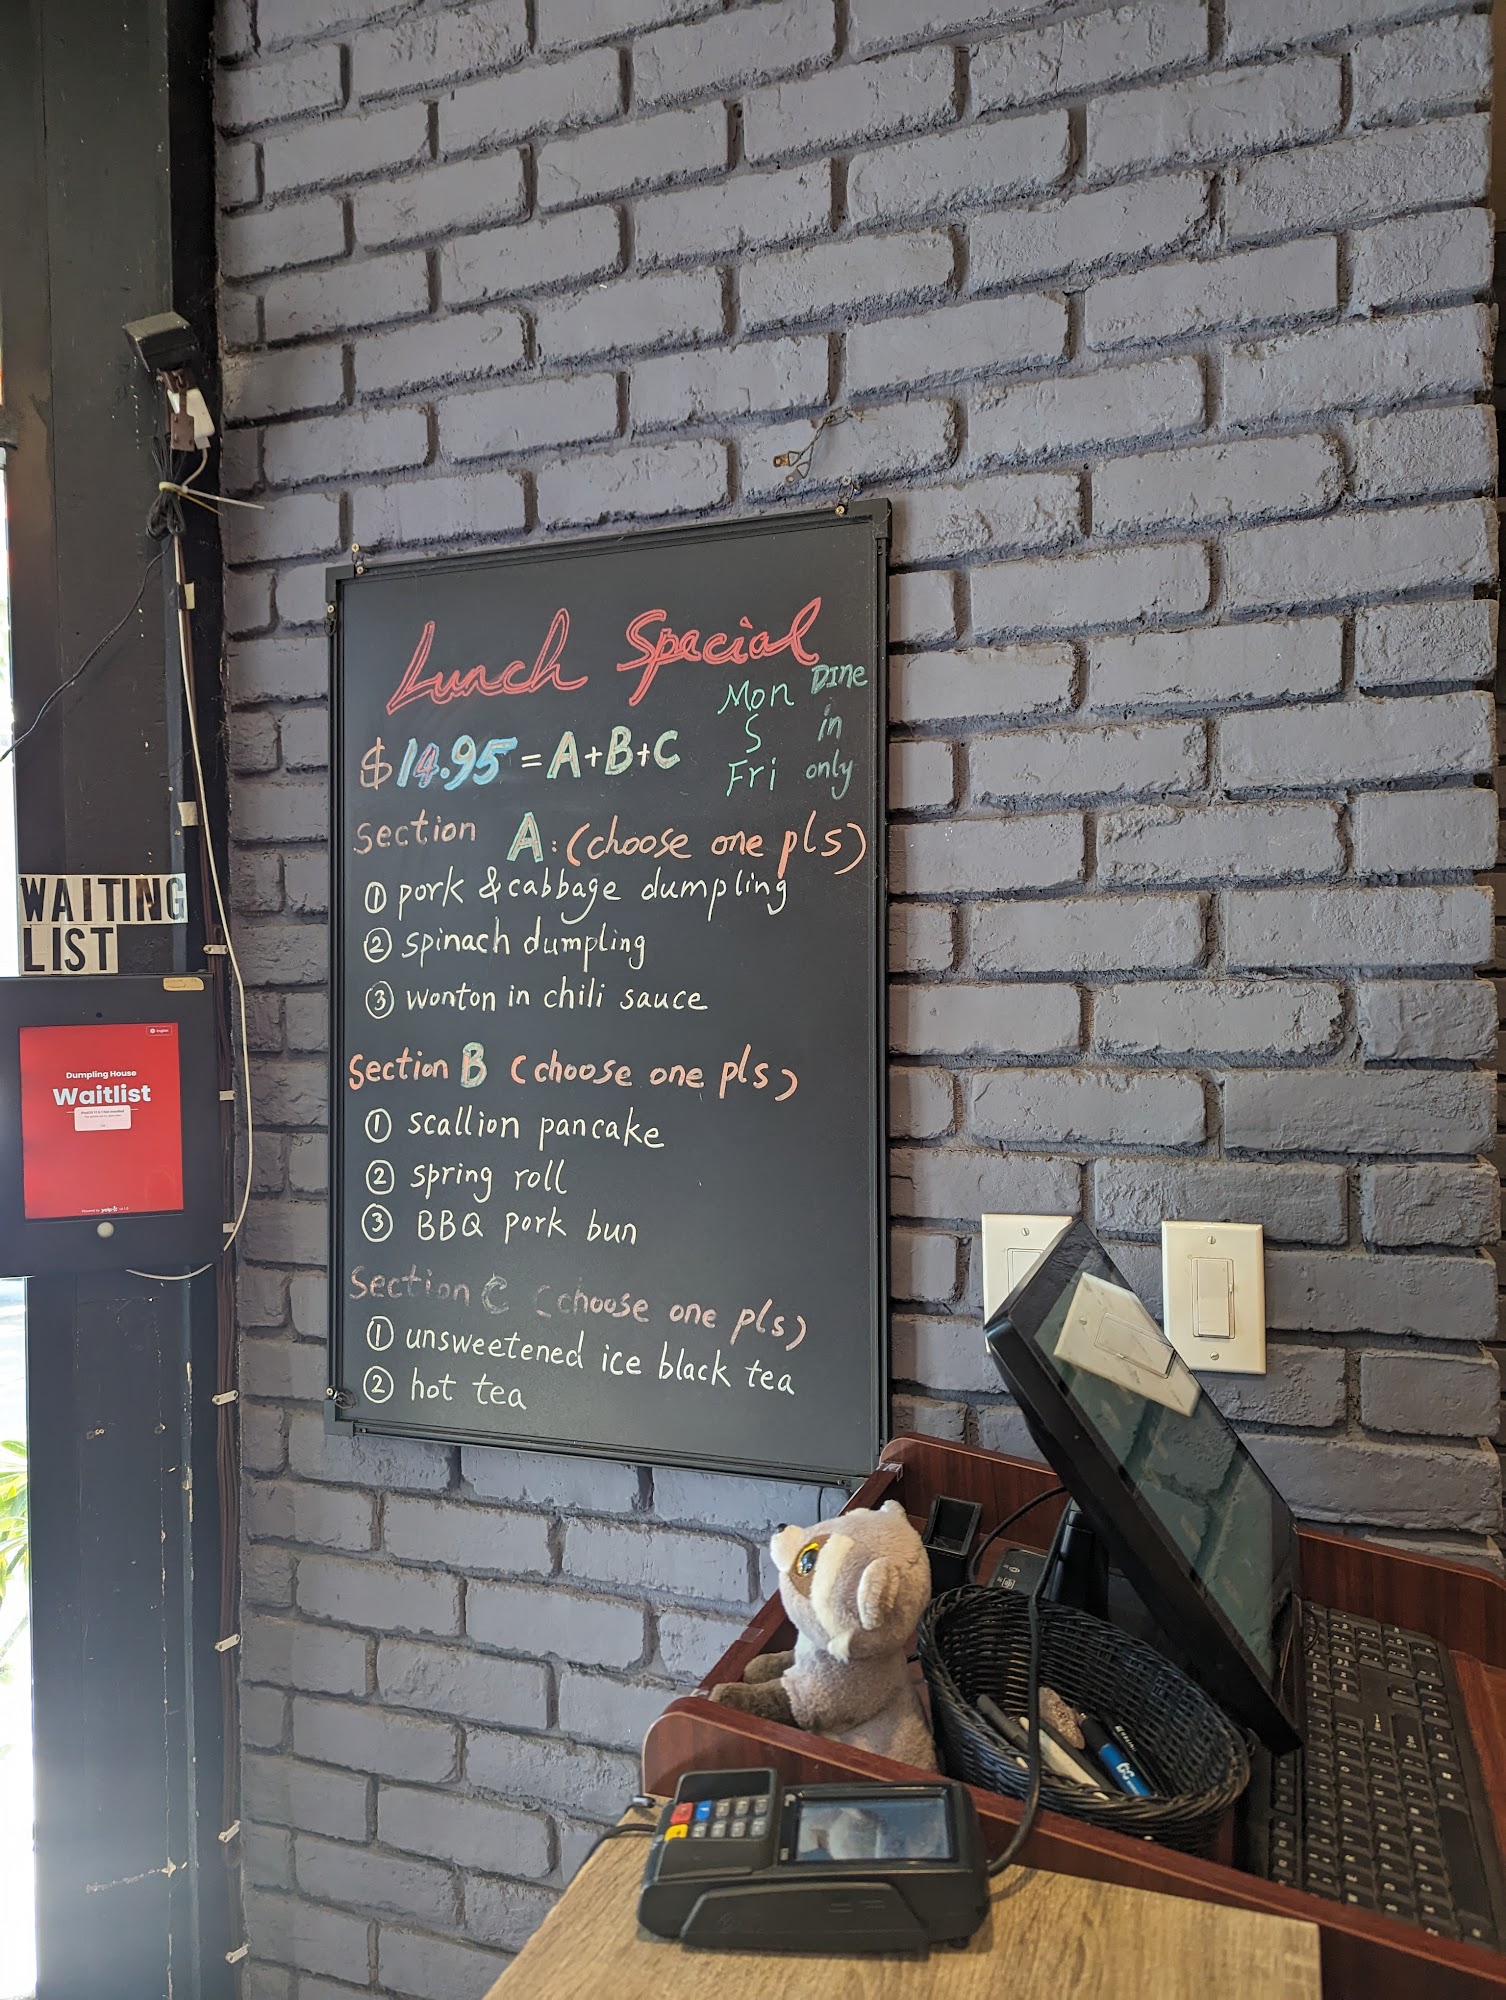 Lunch Spacial
Mon Dine
S in
Fri only
$14.95 = A+B+C
Section A: (choose one pls)
① pork & cabbage dumpling
② spinach dumpling
③ wonton in chili sauce
Section B (choose one pls)
① scallion pancake
② spring roll
③ BBQ pork bun
Section C (choose one pls)
① unsweetened ice black tea
② hot tea
WAITING
LIST
English
Dumpling House
Waitlist
Powered by yelp